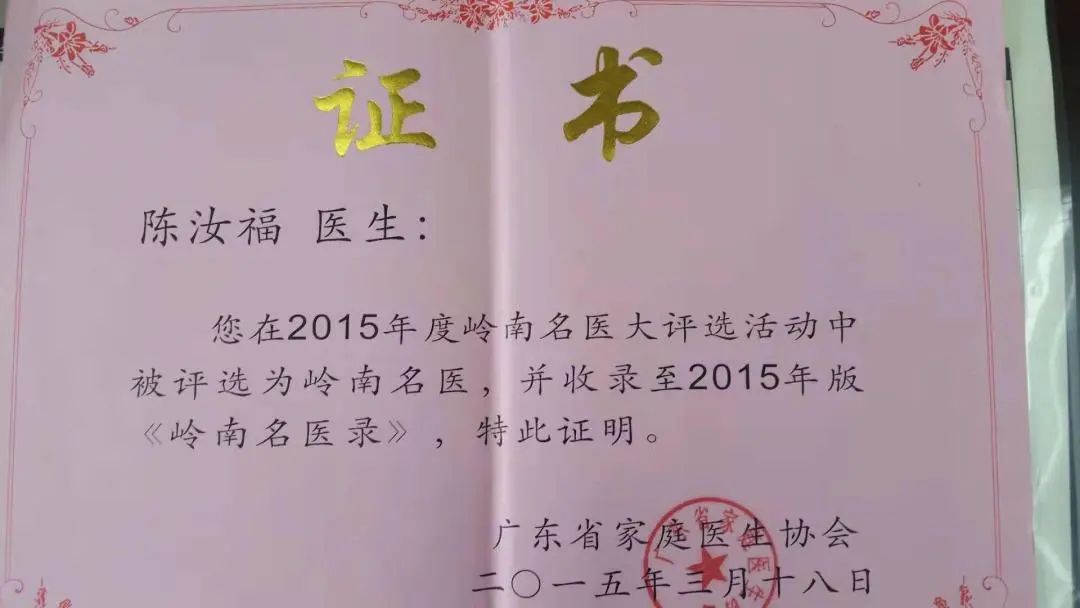 证书
陈汝福 医生：
您在2015年度岭南名医大评选活动中
被评选为岭南名医，并收录至2015年版
《岭南名医录》，特此证明。
广东省家庭医生协会
二〇一五年三月十八日